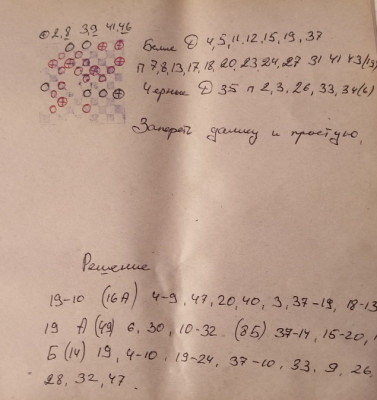 2,8 3,9 41,46
Белые Д 4,5,11,12,15,19,37
п 7,8,13,17,18,20,23,24,27 31 41 43
Черные Д 35 п 2,3,26,33,34(6)
Запереть дамку и простую.
Решение
19-10 (16А) 4-9, 47, 20, 40, 3, 37-19, 18-13
19 А (49) 6, 30, 10-32 (8Б) 37-14, 15-20,
Б (14) 19, 4-10, 19-24, 37-10, 33, 9, 26,
28, 32, 47.